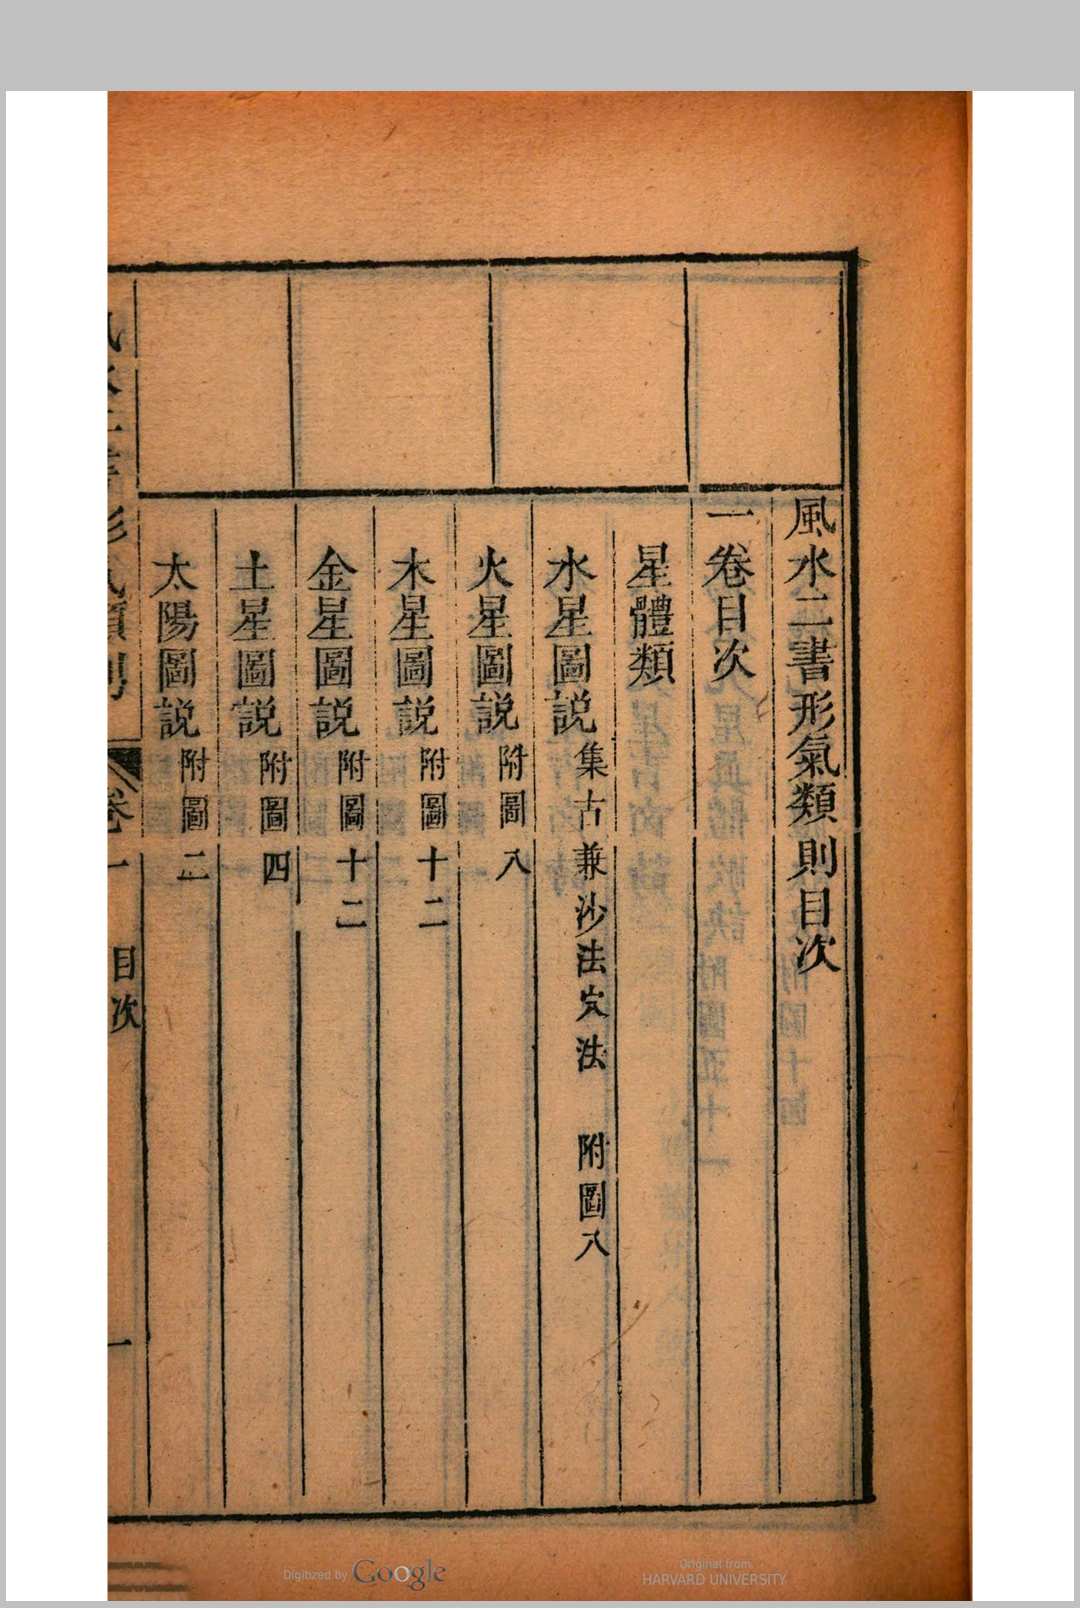 風水二書形氣類則目次
一卷目次
星體類
水星圖説 集古兼沙法穴法 附圖八
火星圖説 附圖八
木星圖説 附圖十二
金星圖説 附圖十二
土星圖説 附圖四
太陽圖説 附圖二
卷一 目次 一
Digitized by Google
Original from
HARVARD UNIVERSITY